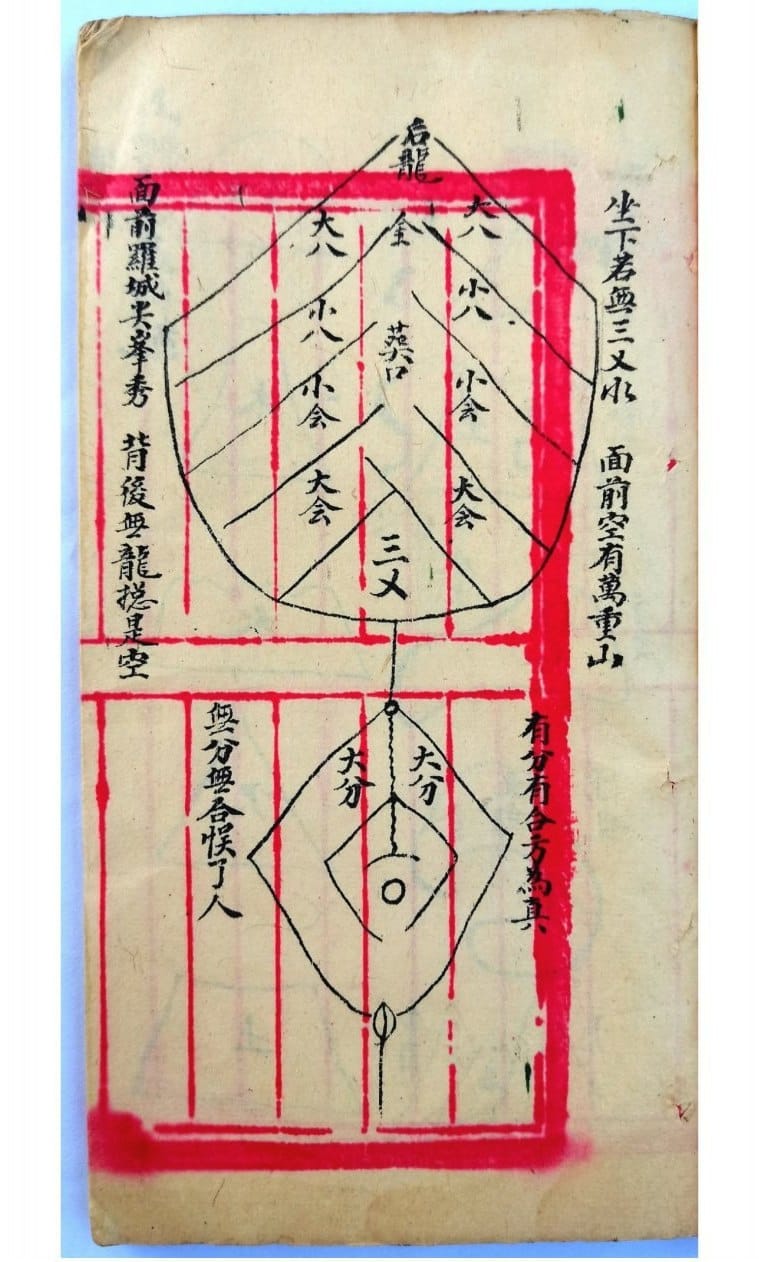 坐下若無三叉水 面前空有萬重山
后龍
金
大八
大八
小八
小八
葬口
小会
小会
大会
大会
三叉
面前羅城尖峯秀 背後無龍捴是空
有分有合方為真
大分
大分
無分無合悮了人